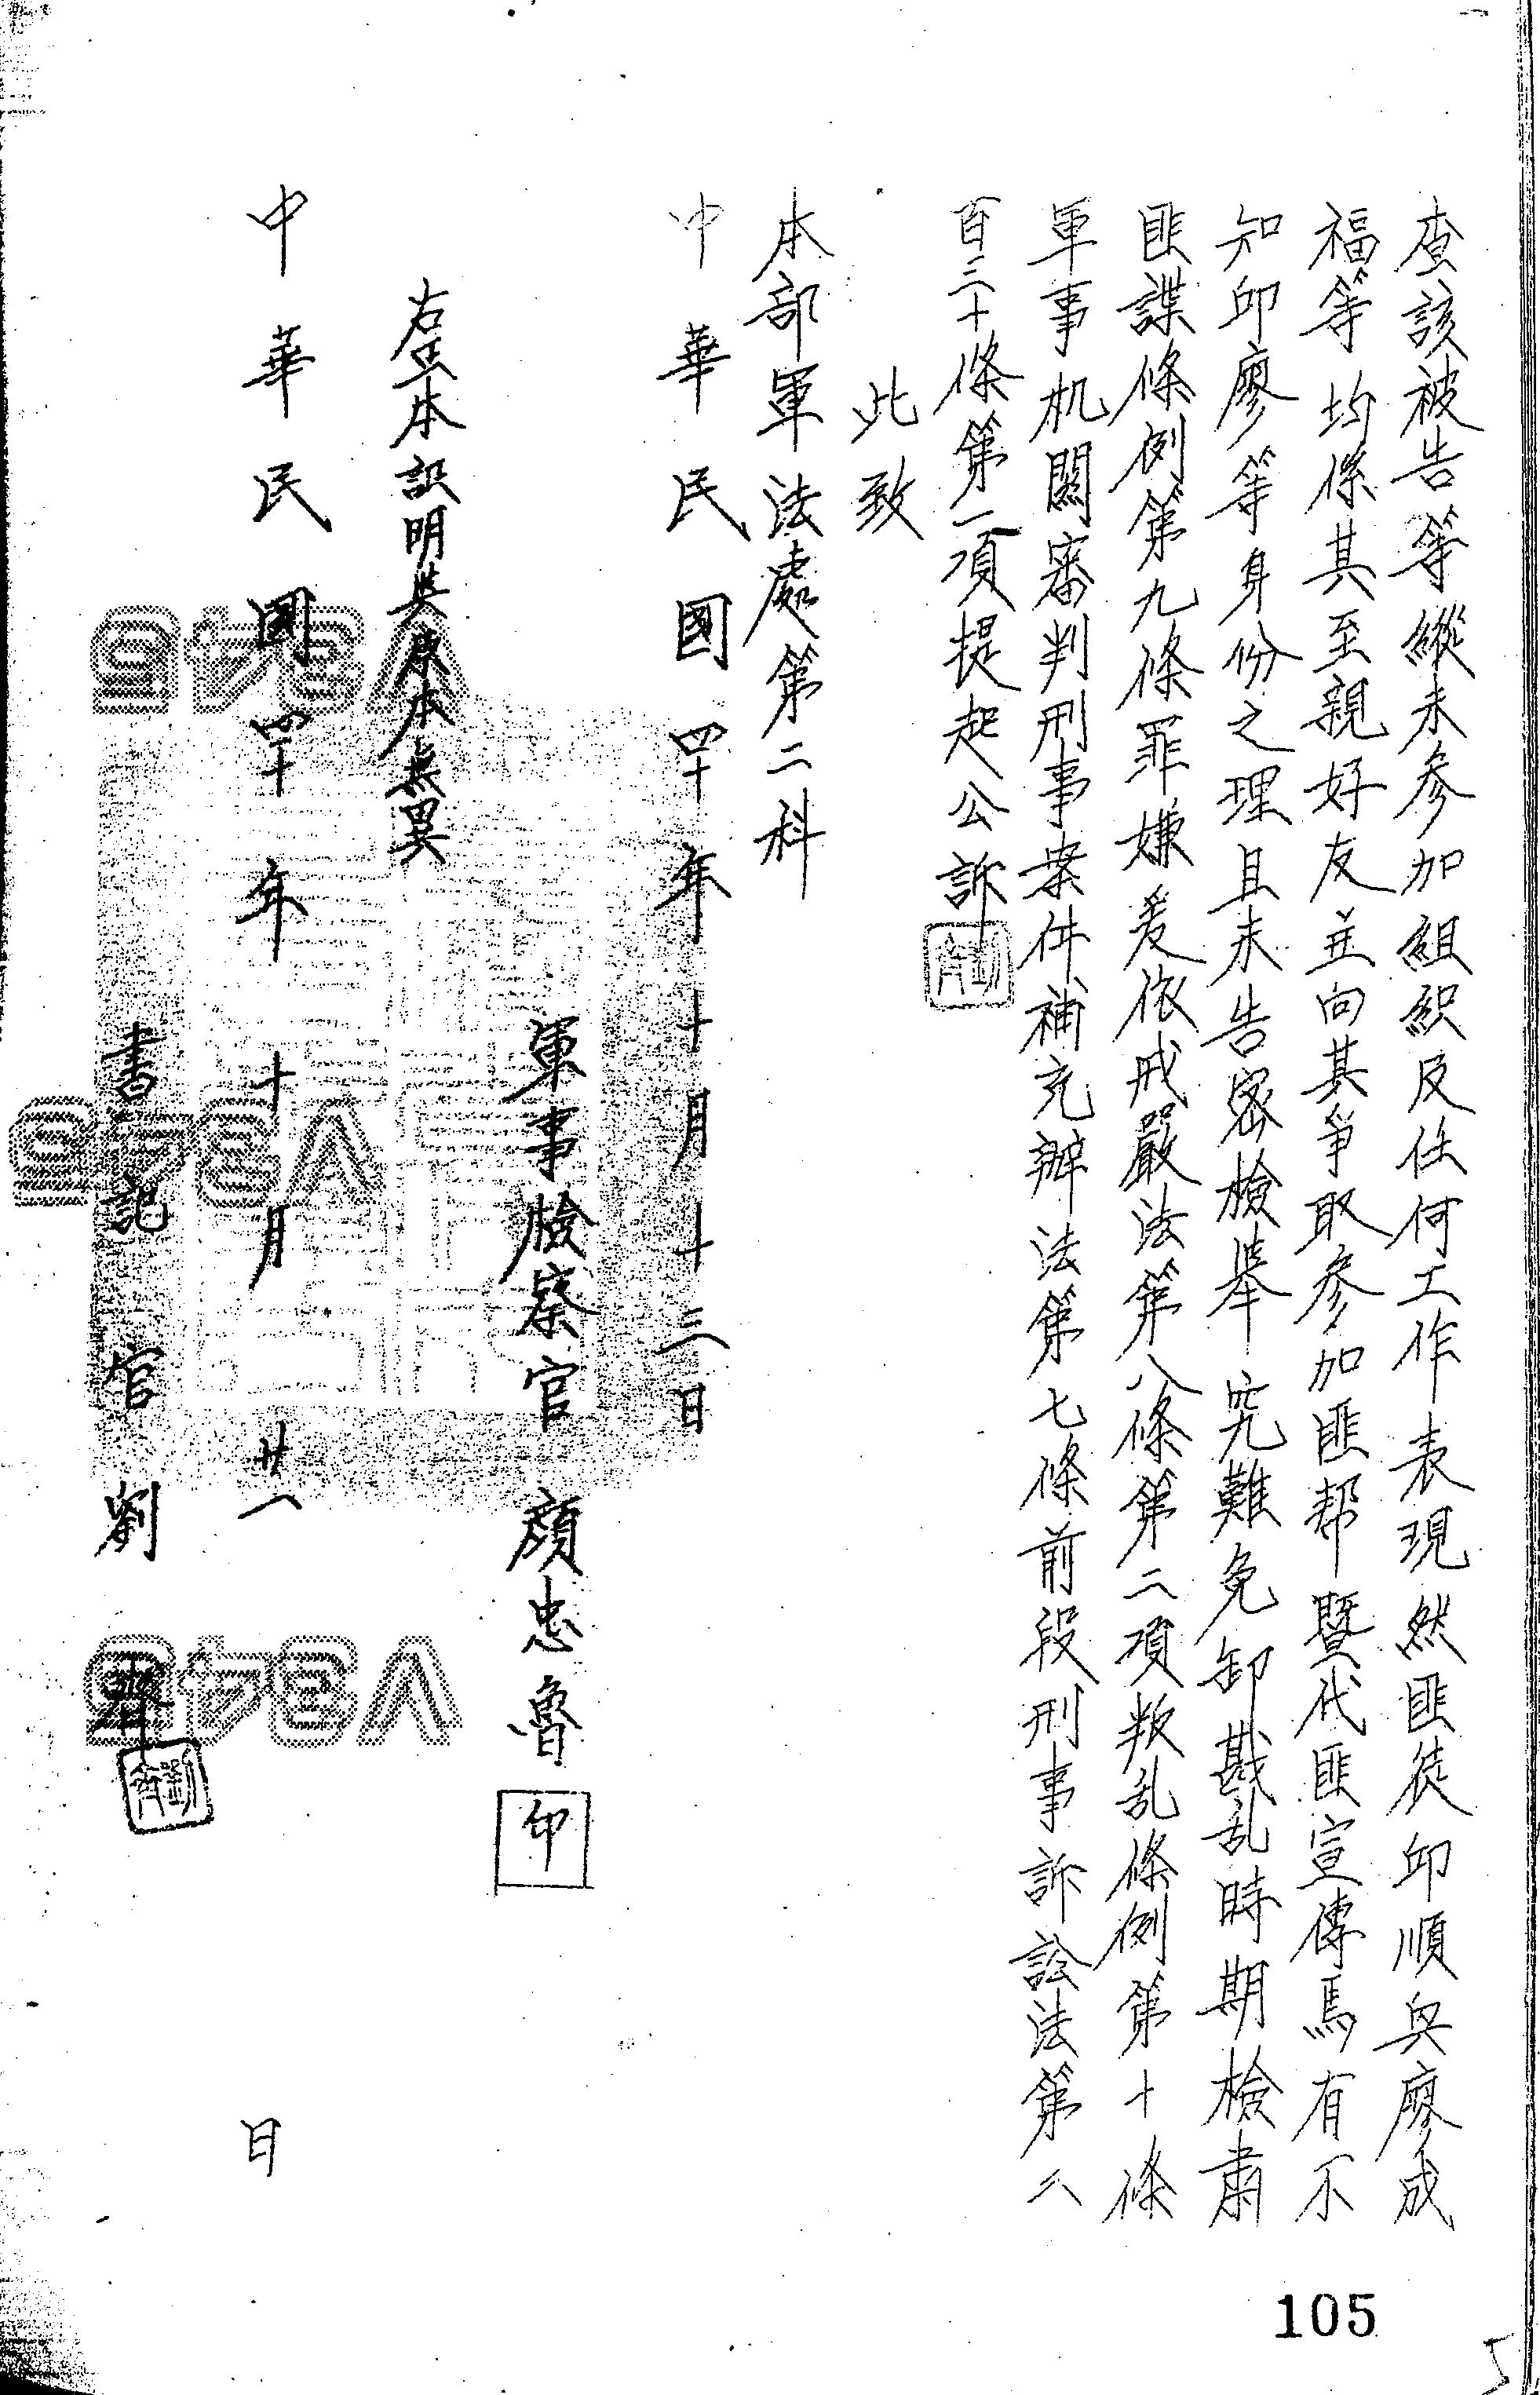 查該被告等縱未參加組織及任何工作表現然匪徒邱順與廖成
福等均係其至親好友並向其爭取參加匪幫暨代匪宣傳焉有不
知邱廖等身份之理且未告密檢舉究難免卸戡乱時期檢肅
匪諜條例第九條罪嫌爰依戒嚴法第八條第二項叛乱條例第十條
軍事机關審判刑事案件補充辦法第七條前段刑事訴訟法第二
百三十條第一項提起公訴
此致
本部軍法處第二科
中華民國四十年十月十三日
軍事檢察官 顏忠魯 印
右正本証明與原本無異
中華民國四十年十月廿一日
書記官 劉齊
105